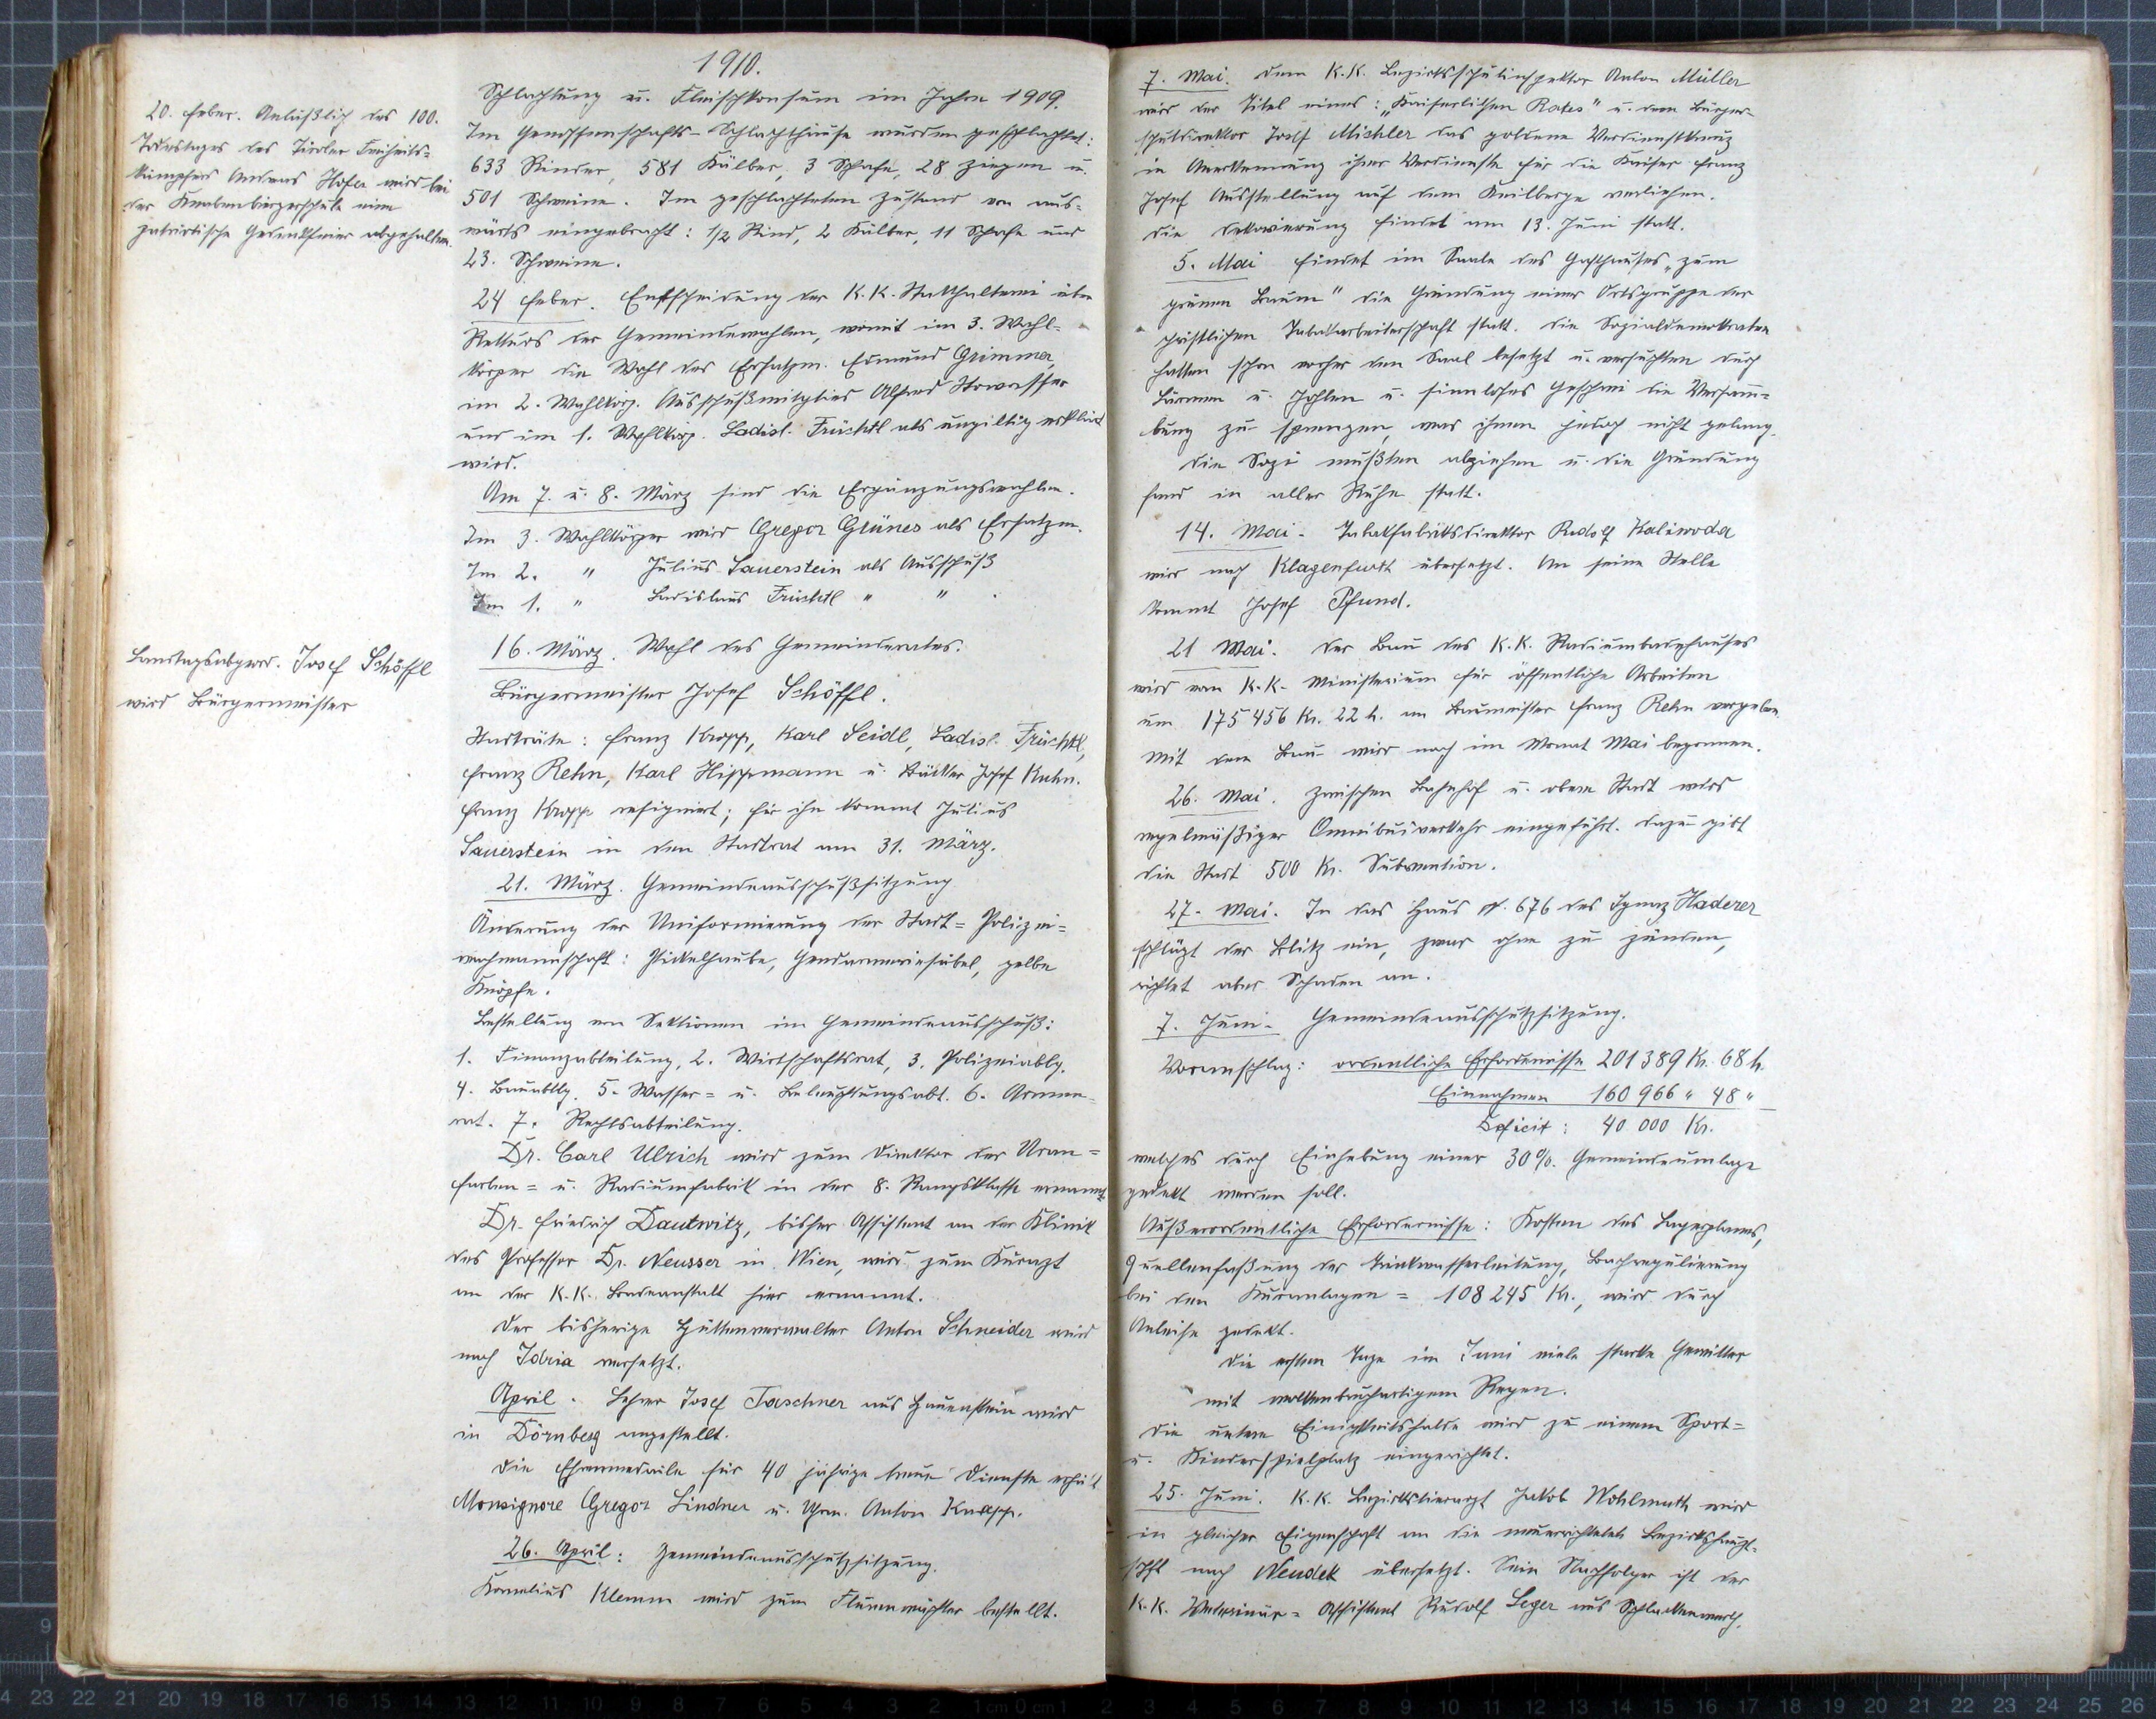 1910.
20. Feber. Anläßlich des 100.
Todestages des Tiroler Freiheits=
kämpfers Andreas Hofer wird bei
der Knabenbürgerschule eine
patriotische Gedenkfeier abgehalten.
Schlachtung u. Fleischkonsum im Jahre 1909.
Im Genossenschafts-Schlachthause wurden geschlachtet:
633 Rinder, 581 Kälber, 3 Schafe, 28 Ziegen u.
501 Schweine. Im geschlachteten Zustand von aus=
wärts eingebracht: 1/2 Rind, 2 Kälber, 11 Schafe und
23. Schweine.
24 Feber. Entscheidung der K. K. Statthalterei über
Rekurs der Gemeindewahlen, womit im 3. Wahl-
körper die Wahl des Ersatzm. Edmund Grimmer,
im 2. Wahlkörp. Ausschußmitglied Alfred Stowasser
und im 1. Wahlkörp. Ladisl. Früchtl als ungiltig erklärt
wird.
Am 7. u. 8. März sind die Ergänzungswahlen.
Im 3. Wahlkörper wird Gregor Grünes als Ersatzm.
Im 2. " Julius Sauerstein als Ausschuß
Im 1. " Ladislaus Früchtl " " .
16. März. Wahl des Gemeinderates.
Landtagsabgeord. Josef Schöffl
wird Bürgermeister
Bürgermeister Josef Schöffl.
Stadträte: Franz Kropp, Karl Seidl, Ladisl. Früchtl,
Franz Rehn, Karl Hippmann u. Bäcker Josef Kuhn.
Franz Kropp resigniert; für ihn kommt Julius
Sauerstein in den Stadtrat am 31. März.
21. März. Gemeindeausschußsitzung
Änderung der Uniformierung der Stadt=Polizei=
wachmannschaft: Pickelhaube, Gendarmeriesäbel, gelbe
Knöpfe.
Bestellung von Sektionen im Gemeindeausschuß:
1. Finanzabteilung, 2. Wirtschaftsrat, 3. Polizeiabtlg.
4. Bauabtlg. 5. Wasser= u. Beleuchtungsabt. 6. Armen=
rat. 7. Rechtsabteilung.
Dr. Carl Ulrich wird zum Direktor der Uran=
farben= u. Radiumfabrik in der 8. Rangsklasse ernannt.
Dr. Friedrich Dautwitz, bisher Assistent an der Klinik
des Professor Dr. Neusser in Wien, wird zum Kurarzt
an der K. K. Badeanstalt hier ernannt.
Der bisherige Hüttenverwalter Anton Schneider wird
nach Idria versetzt.
April. Lehrer Josef Taschner aus Hauenstein wird
in Dörnberg angestellt.
Die Ehrenmedaile für 40 jährige treue Dienste erhält
Monsignore Gregor Lindner u. Anton Knapp.
26. April: Gemeindeausschußsitzung.
Kornelius Klemm wird zum Flurenwächter bestellt.
7. Mai. Dem K. K. Bezirksschulinspektor Anton Müller
wird der Titel eines: "Kaiserlichen Rates" u. dem Bürger-
schuldirektor Josef Michler das goldene Verdienstkreuz
in Anerkennung ihrer Verdienste für die Kaiser Franz
Josef Ausstellung auf dem Keilberge verliehen.
Die Dekorierung findet am 13. Juni statt.
5. Mai findet im Saale des Gasthauses "zum
grünen Baum" die Gründung einer Ortsgruppe der
christlichen Tabakarbeiterschaft statt. Die Sozialdemokraten
hatten schon vorher den Saal besetzt u. versuchten durch
Lärmen u. Johlen u. sinnloses Geschrei die Versamm=
lung zu sprengen, was ihnen jedoch nicht gelang.
Die Sozi mußten abziehen u. die Gründung
fand in aller Ruhe statt.
14. Mai. Tabakfabriksdirektor Rudolf Kaliwoda
wird nach Klagenfurt übersetzt. An seine Stelle
kommt Josef Pfund.
21 Mai. Der Bau des K. K. Radiumbadehauses
wird vom K. K. Ministerium für öffentliche Arbeiten
um 175456 Kr. 22 h. an Baumeister Franz Rehn vergeben.
Mit dem Bau wird noch im Monat Mai begonnen.
26. Mai. Zwischen Bahnhof u. obere Stadt wird
regelmäßiger Omnibusverkehr eingeführt. Dazu gibt
die Stadt 500 Kr. Subvention.
27. Mai. In das Haus № 676 des Ignaz Haderer
schlägt der Blitz ein, zwar ohne zu zünden,
richtet aber Schaden an.
7. Juni. Gemeindeausschußsitzung.
Voranschlag: ordentliche Erfordernisse 201389 Kr. 68 h.
Einnahmen 160966 " 48 "
Deficit: 40 000 Kr.
welches durch Einhebung einer 30%. Gemeindeumlage
gedekt werden soll.
Außerordentliche Erfordernisse: Kosten des Lageplanes,
Quellenfaßung der Trinkwasserleitung, Bachregulierung
bei den Kuranlagen = 108245 Kr., wird durch
Anleihe gedekt.
Die ersten Tage im Juni viele starke Gewitter
mit wolkenbruchartigem Regen.
Die untere Einigkeitshalde wird zu einem Sport=
u. Kinderspielplatz eingerichtet.
25. Juni. K. K. Bezirkstierarzt Jakob Wohlmuth wird
in gleicher Eigenschaft an die neuerrichtete Bezirkshaupt=
schft nach Neudek übersetzt. Sein Nachfolger ist der
K. K. Veterinär=Assistent Rudolf Leger aus Schlackenwerth.